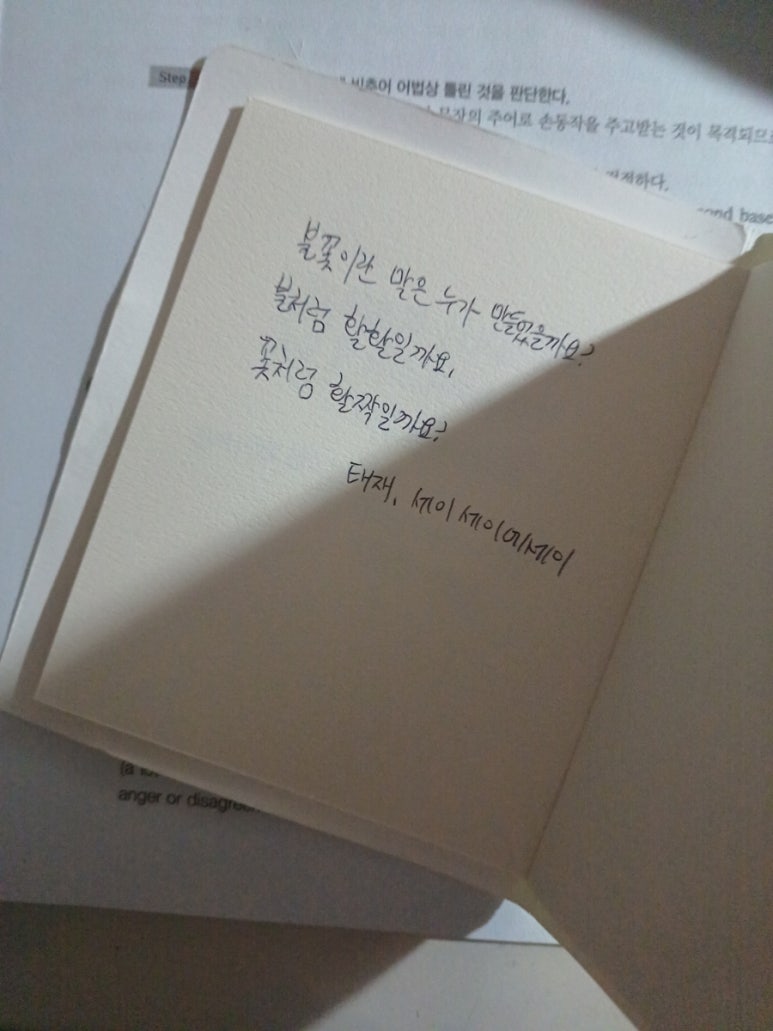 Step
비추어 어법상 틀린 것을 판단한다.
문장의 주어로 손동작을 주고받는 것이 목격되므로
base
불꽃이란 말은 누가 만들었을까요?
불처럼 활활일까요,
꽃처럼 활짝일까요?
태재, 세이 세이 에세이
(a
anger or